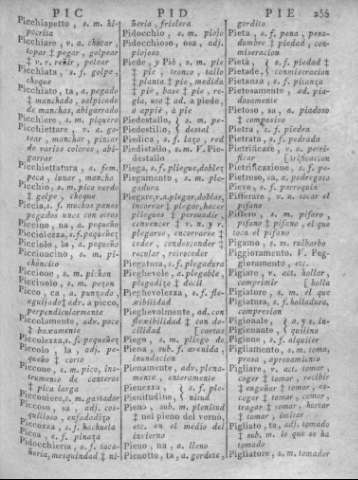 PIC
PID
PIE 255
Picchiapetto, s. m. hi-
pocrita
Picchiare, v. a. chocar,
topar ‡ pegar, golpear
‡ v. r. reñir, pelear
Picchiata, s. f. golpe,
choque
Picchiato, ta, a. pegado
‡ manchado, salpicado
de manchas, abigarrado
Picchiere, s. m. piquero
Picchiettare, v. a. go-
tear, manchar, pintar
de varios colores, abi-
garrar
Picchiettatura, s. fem.
peca, lunar, mancha
Picchio, s. m. pico verde
‡ golpe, choque
Piccia, s. f. muchos panes
pegados unos con otros
Piccino, na, a. pequeño
Picciolezza, s. f. pequeñez
Picciolo, la, a. pequeño
Piccione, s. m. pichon
Picciuolo, s. m. pezon
Picco, ca, a. punzado,
perpendicularmente
Piccolamente, adv. poco
‡ baxamente
Piccolezza, s. f. pequeñez
Piccolo, la, adj. pe-
queño ‡ corto
Piccone, s. m. pico, ins-
trumento de canteros
‡ pica larga
Picconiere, s. m. gastador
Piccoso, sa, adj. cos-
quilloso, enfadadizo
Piccozza, s. f. hachuela
Picea, s. f. pinaza
Pidocchieria, s. f. taca-
ñería, mezquindad ‡ ni-
ñería, friolera
Pidocchio, s. m. piojo
Pidocchioso, osa, adj.
piojoso
Piede, y Piè, s. m. pie
‡ pie, tronco, tallo
‡ planta ‡ pie, medida
‡ pie, base ‡ pie, re-
gla, uso ‡ ad. a piede,
o appiè, á pie
Piedestallo, s. m. pe-
Piedestilo, destal
Piedica, s. f. lazo, red
Piedistallo, s. m. V. Pie-
destallo
Piega, s. f. pliegue, doblez
Piegamento, s. m. ple-
gadura
Piegare, v. a. plegar, doblar,
encorvar ‡ plegar, hacer
pliegues ‡ persuadir,
convencer ‡ v. n. y r.
plegarse, encorvarse ‡
ceder, condescender ‡
recular, retroceder
Piegatura, s. f. plegadura
Pieghevole, a. plegable,
plegadizo ‡ docil
Pieghevolezza, s. f. fle-
xibilidad
Pieghevolmente, ad. con
flexibilidad ‡ con do-
cilidad
Piego, s. m. pliego de
Piena, sub. f. avenida,
inundacion
Pienamente, adv. plena-
mente, enteramente
Pienezza, s. f. ple-
Pienitudine, nitud
Pieno, sub. m. plenitud
‡ nel pieno del verno,
etc. en el medio del
invierno
Pieno, na, a. lleno
Pienotto, ta, a. gordete,
gordito
Pieta, s. f. pena, pesa-
dumbre ‡ piedad, con-
miseracion
Pietà, s. f. piedad ‡
Pietade, conmiseracion
Pietanza, s. f. pitanza
Pietosamente, ad. pia-
dosamente
Pietoso, sa, a. piadoso
‡ compasivo
Pietra, s. f. piedra
Pietrata, s. f. pedrada
Pietrificare, v. a. petri-
ficar
Pietrificazione, s. f. pe-
trificacion
Pietroso, sa, a. pedregoso
Pieve, s. f. parroquia
Pifferare, v. a. tocar el
pifano
Piffero, s. m. pifaro,
pifano ‡ pifano, el que
toca el pifano
Pigamo, s. m. ruibarbo
Piggioramento, V. Peg-
gioramento, etc.
Pigiare, v. act. hollar,
comprimir
Pigiatore, s. m. el que
Pigiatura, s. f. holladura,
compresion
Pigionale, a. y s. in-
Pigionante, quilino
Pigione, s. f. alquiler
Pigliamento, s. m. toma,
presa, apresamiento
Pigliare, v. act. tomar,
coger ‡ tomar, recibir
‡ engañar ‡ tomar, es-
coger ‡ tomar, comer,
tragar ‡ tomar, hurtar
‡ tomar, imitar
Pigliato, ta, adj. tomado
‡ sub. m. lo que se ha
tomado
Pigliatore, s. m. tomador